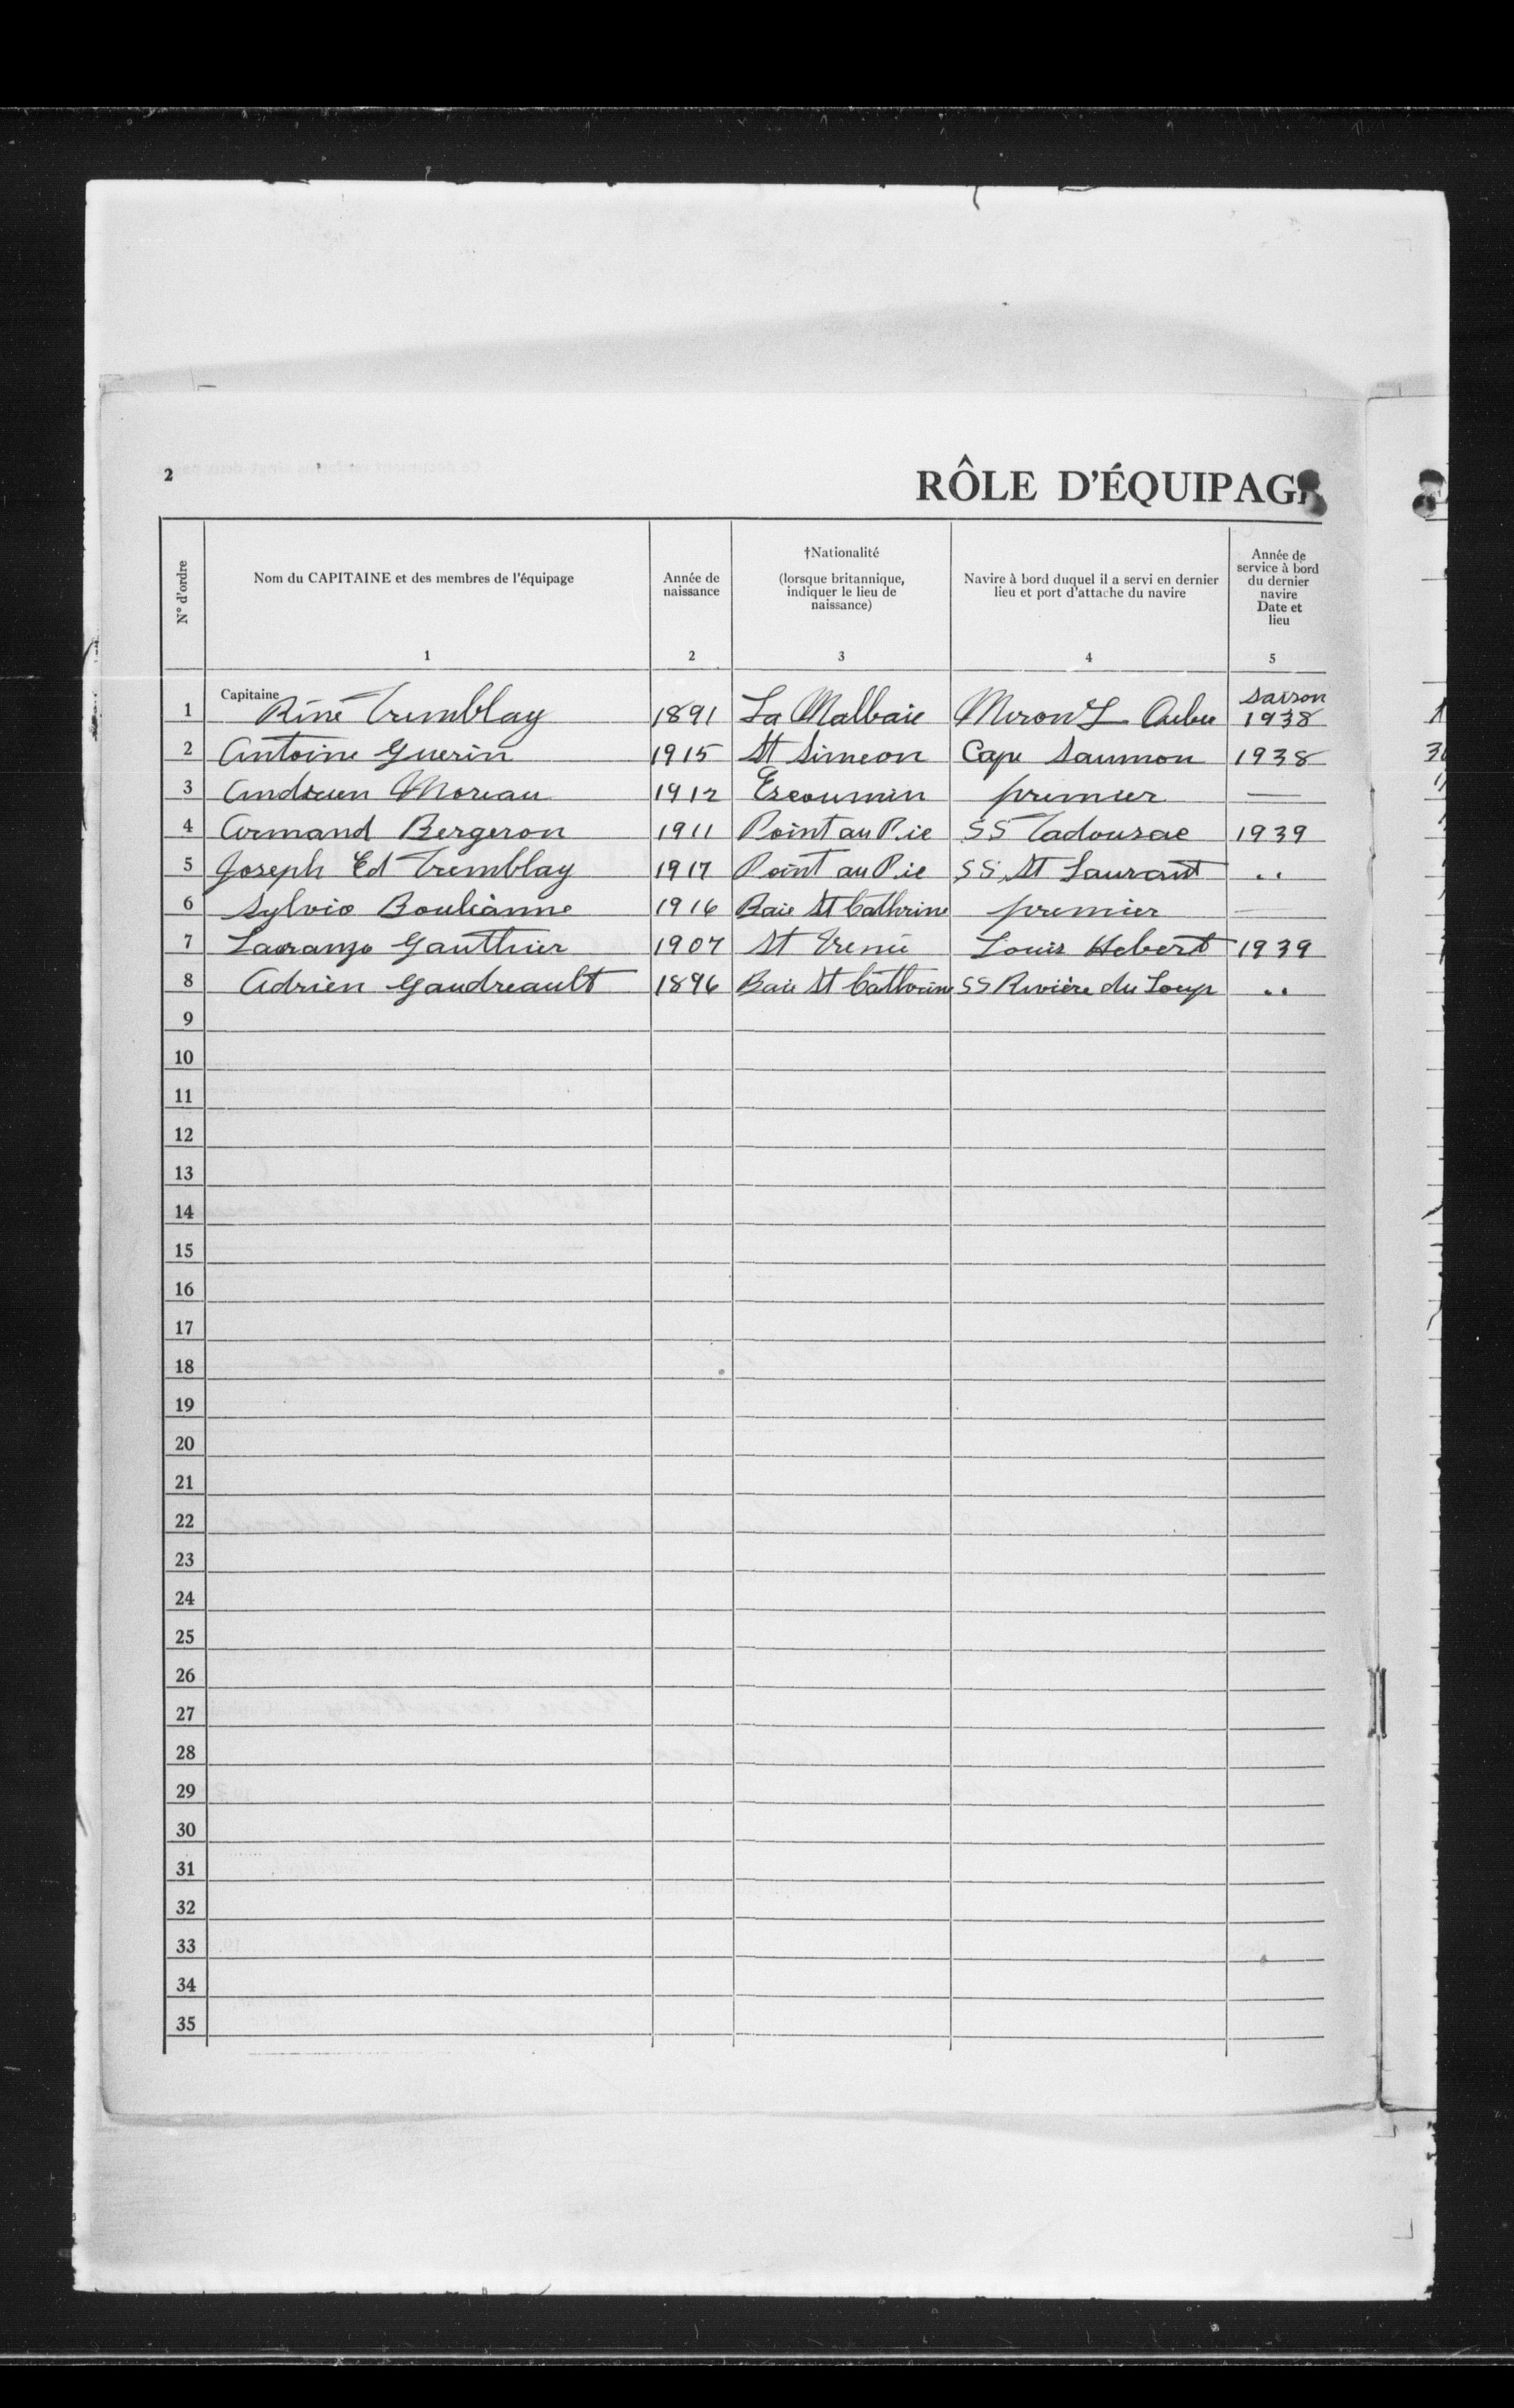 2
RÔLE D'ÉQUIPAG
N° d'ordre
Nom du CAPITAINE et des membres de l'équipage
1
Année de
naissance
2
†Nationalité
(lorsque britannique,
indiquer le lieu de
naissance)
3
Navire à bord duquel il a servi en dernier
lieu et port d'attache du navire
4
Année de
service à bord
du dernier
navire
Date et
lieu
5
1 Capitaine Réné Tremblay 1891 La Malbaie Meron L saison 1938
2 Antoine Guerin 1915 St Simeon Cape Saumon 1938
3 Andrien Moreau 1912 Escoumin premier —
4 Armand Bergeron 1911 Point au Pie SS Tadousac 1939
5 Joseph Ed Tremblay 1917 Point au Pie SS St Laurant ..
6 Sylvio Boulianne 1916 Baie St Cathrine premier —
7 Laoranzo Gauthier 1907 St Irenée Louis Hebert 1939
8 Adrien Gaudreault 1896 Baie St Cathrine SS Rivière du Loup ..
9
10
11
12
13
14
15
16
17
18
19
20
21
22
23
24
25
26
27
28
29
30
31
32
33
34
35